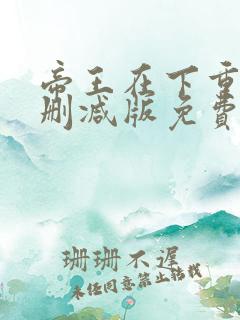 帝王在下重
删减版免费
珊珊不遲
未经同意禁止转载